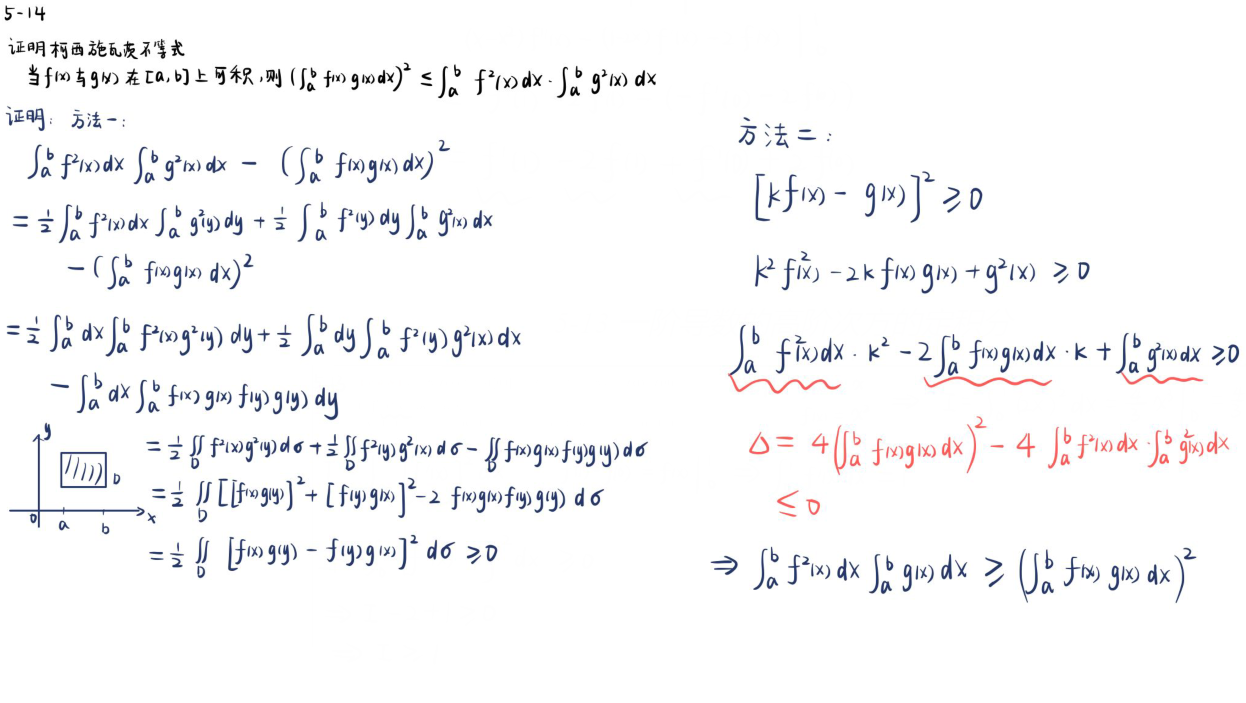 5-14
证明柯西施瓦茨不等式
当f(x)与g(x)在[a,b]上可积,则(∫_a^b f(x)g(x)dx)² ≤ ∫_a^b f²(x)dx·∫_a^b g²(x)dx
证明: 方法一:
∫_a^b f²(x)dx ∫_a^b g²(x)dx - (∫_a^b f(x)g(x)dx)²
= 1/2 ∫_a^b f²(x)dx ∫_a^b g²(y)dy + 1/2 ∫_a^b f²(y)dy ∫_a^b g²(x)dx
- (∫_a^b f(x)g(x)dx)²
= 1/2 ∫_a^b dx ∫_a^b f²(x)g²(y)dy + 1/2 ∫_a^b dy ∫_a^b f²(y)g²(x)dx
- ∫_a^b dx ∫_a^b f(x)g(x)f(y)g(y)dy
= 1/2 ∬_D f²(x)g²(y)dσ + 1/2 ∬_D f²(y)g²(x)dσ - ∬_D f(x)g(x)f(y)g(y)dσ
= 1/2 ∬_D [[f(x)g(y)]² + [f(y)g(x)]² - 2 f(x)g(x)f(y)g(y) dσ
= 1/2 ∬_D [f(x)g(y) - f(y)g(x)]² dσ ≥ 0
y
D
0 a b x
方法二:
[kf(x) - g(x)]² ≥ 0
k²f²(x) - 2kf(x)g(x) + g²(x) ≥ 0
∫_a^b f²(x)dx·k² - 2∫_a^b f(x)g(x)dx·k + ∫_a^b g²(x)dx ≥ 0
Δ = 4(∫_a^b f(x)g(x)dx)² - 4 ∫_a^b f²(x)dx·∫_a^b g²(x)dx
≤ 0
⇒ ∫_a^b f²(x)dx ∫_a^b g(x)dx ≥ (∫_a^b f(x)g(x)dx)²